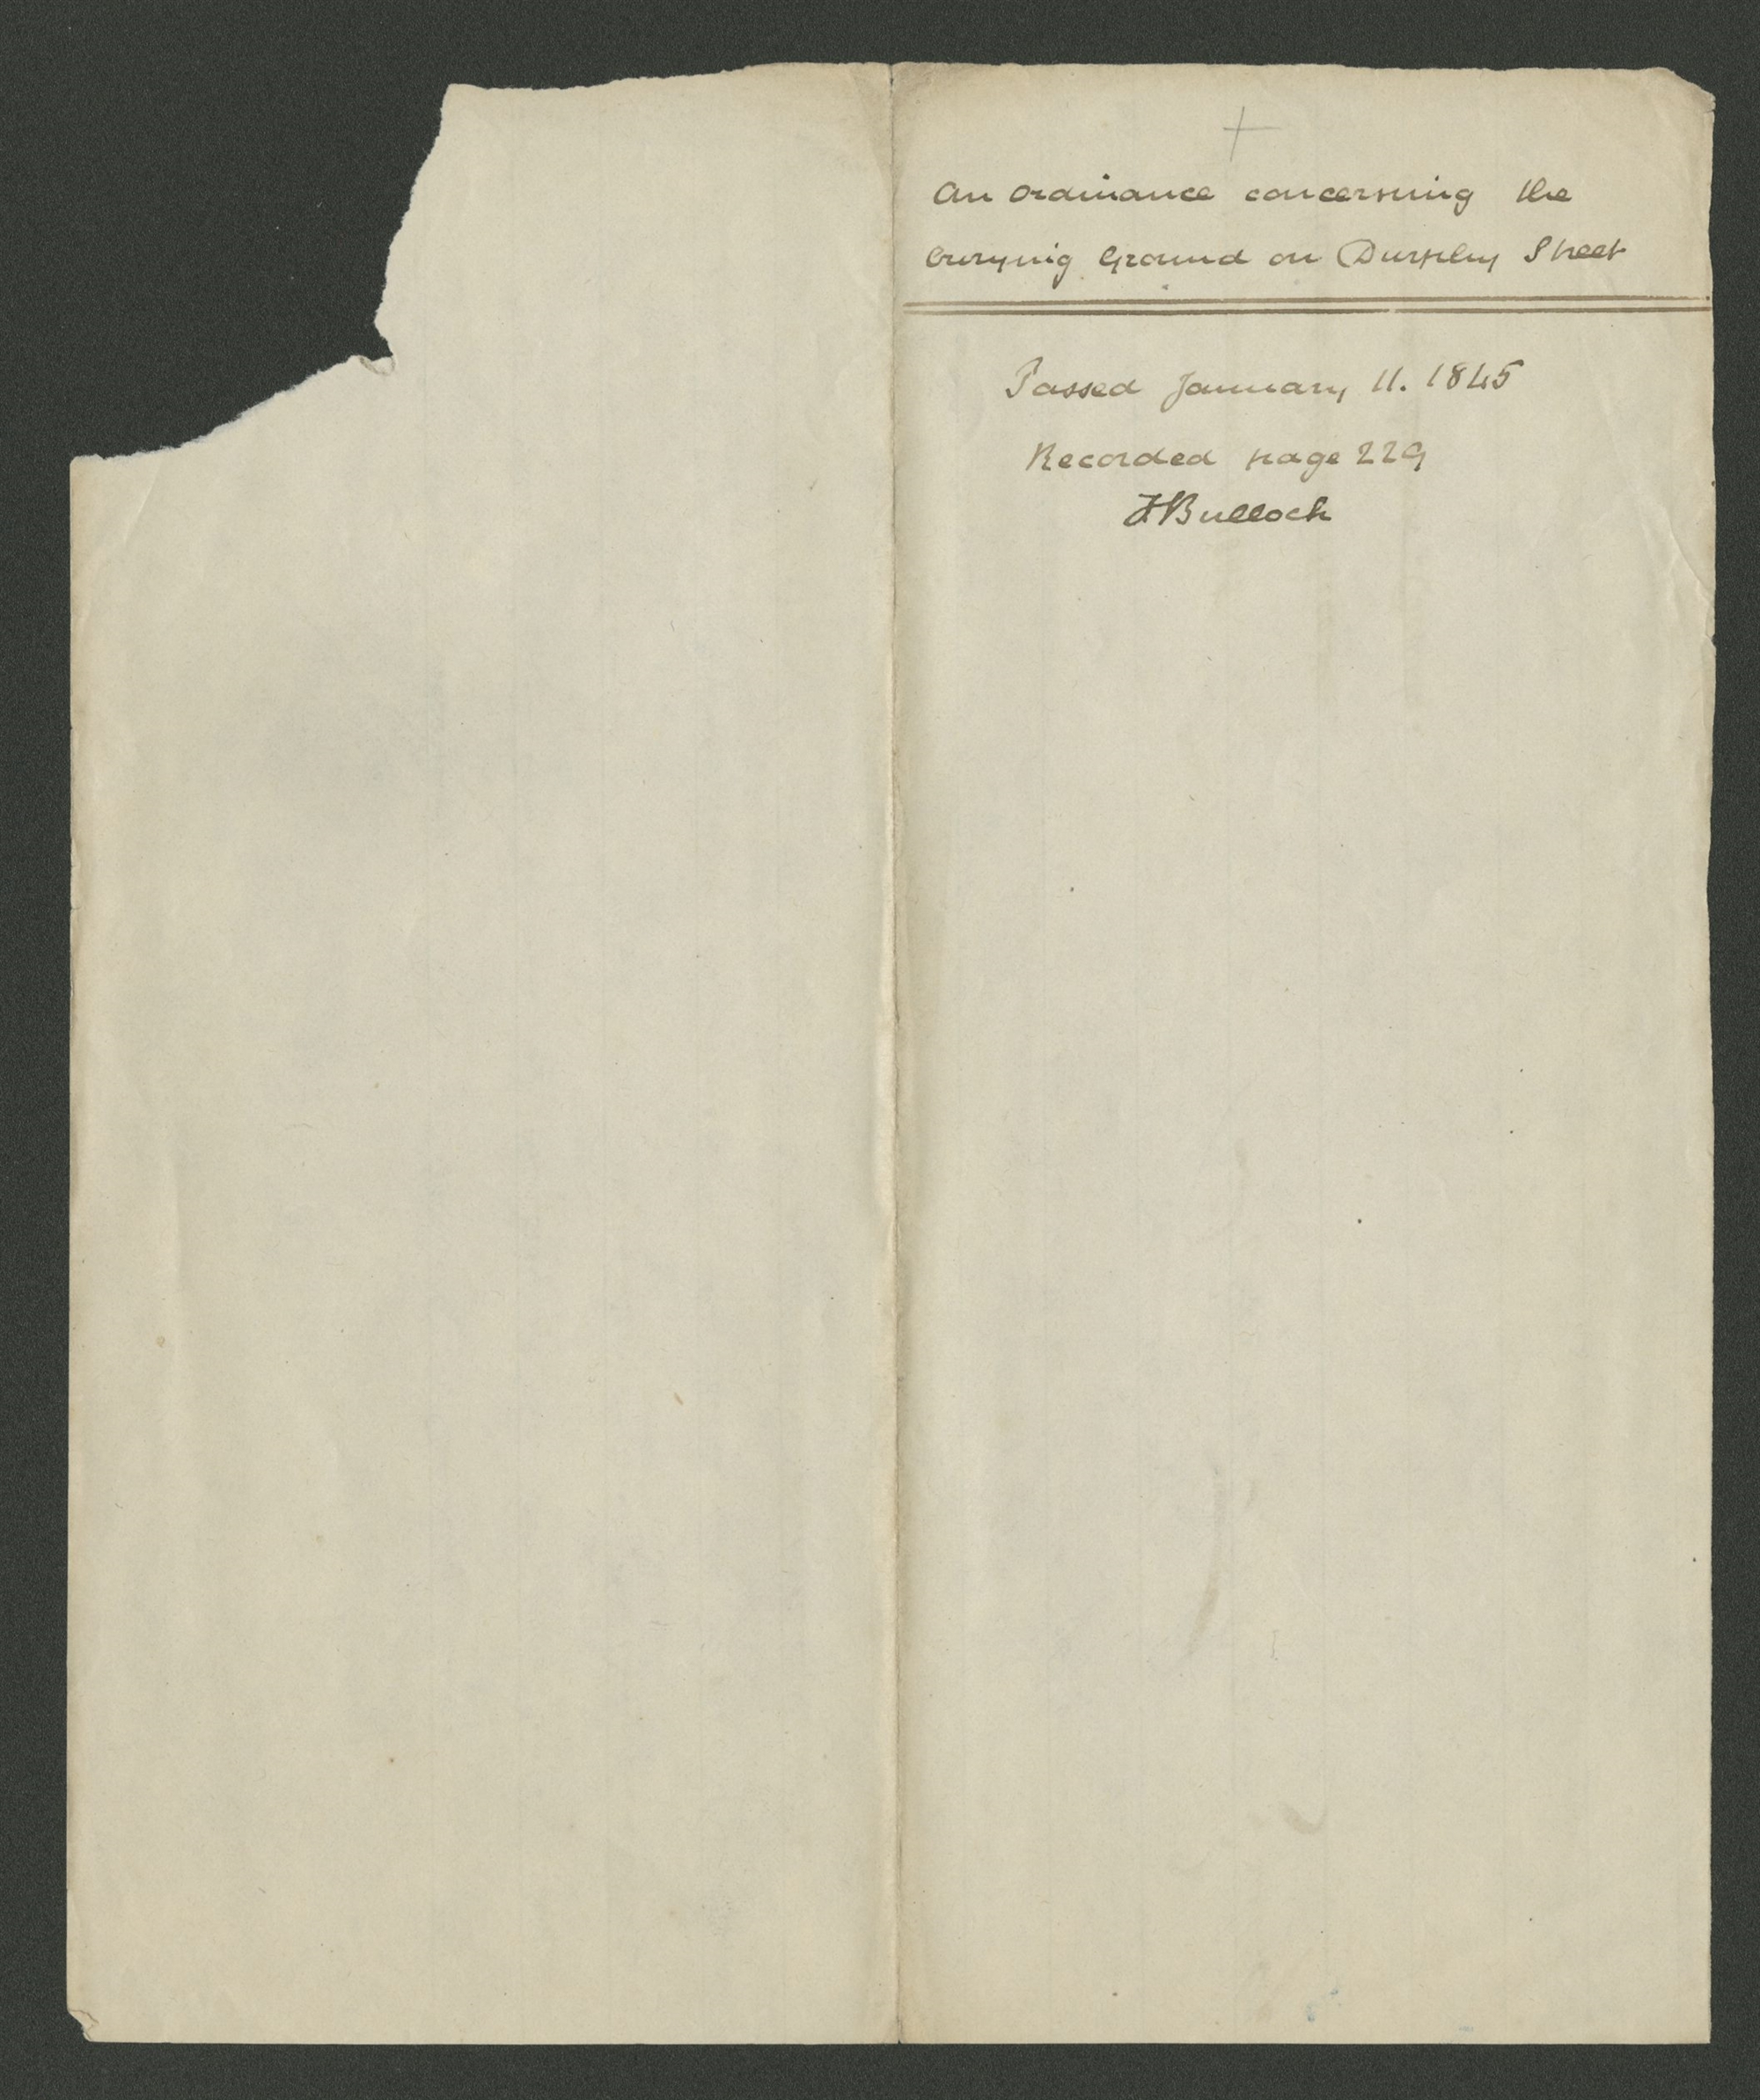 An Ordinance concerning the
burying Ground on Durpley Street
Passed January 11. 1845
Recorded page 229
HBulloch